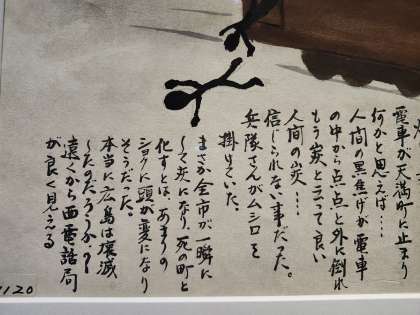 電車が天満町に止まり
何かと思えば……
人間の黒焦げが電車
の中から点点と外に倒れ
もう炭と云って良い
人間の炭……
信じられない事だった。
兵隊さんがムシロを
掛けていた。
まさか全市が一瞬に
して灰になり、死の町と
化すとは、あまりの
ショックに頭が変になり
そうだった。
本当に広島は壊滅
したのだろうか?
遠くから西電話局
が良く見える
1120